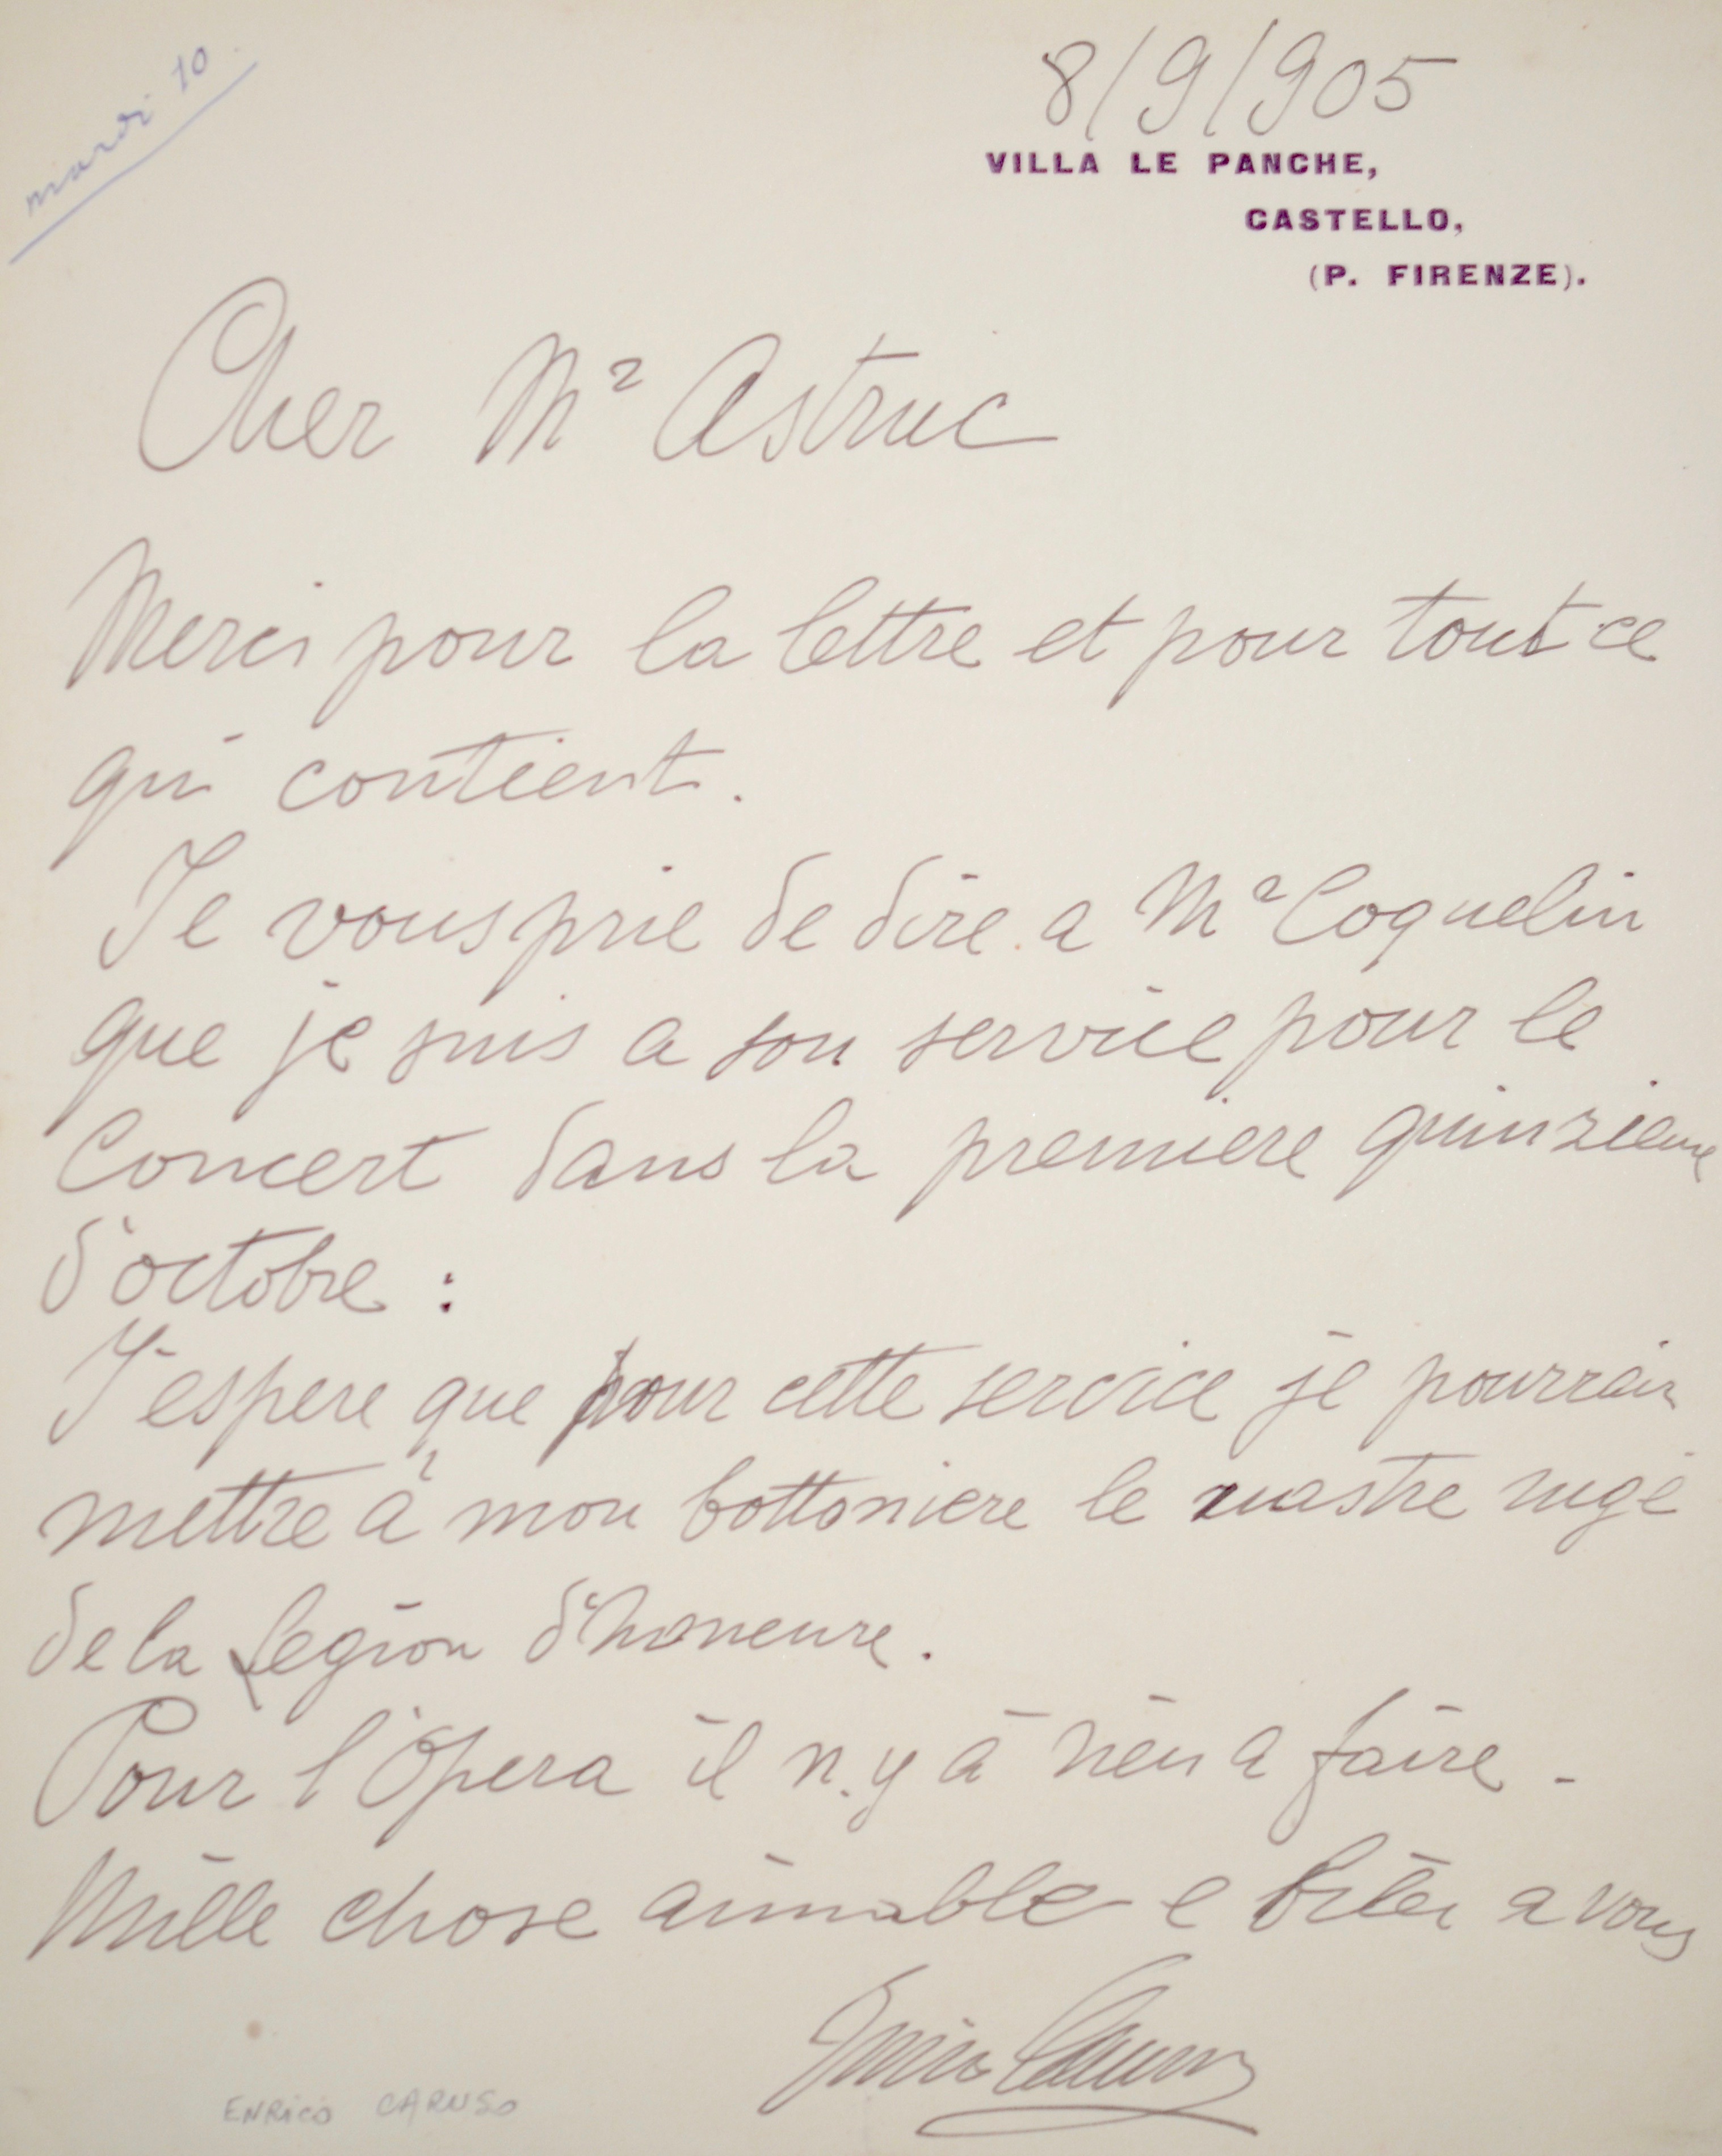 mardi 10
8/9/905
VILLA LE PANCHE,
CASTELLO,
(P. FIRENZE).
Cher Mr Astruc
Merci pour la lettre et pour tout ce
qui contient.
Je vous prie de dire a Mr Coquelin
que je suis a son service pour le
Concert dans la premiere quinzieme
d'octobre :
J'espere que pour cette service je pourrais
mettre à mon bottoniere le nastre ruge
de la Legion d'honneure.
Pour l'Opera il n.y a rien a faire -
Mille chose aimable e bien a vous
Enrico Caruso
ENRICO CARUSO